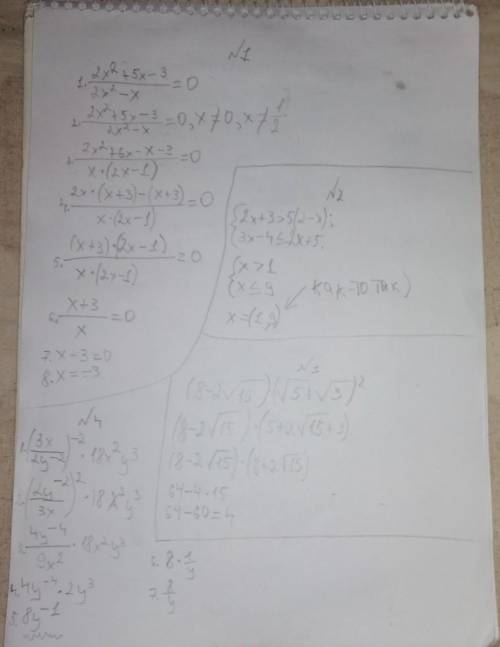 №1
1. (2x²+5x-3)/(2x²-x) = 0
2. (2x²+5x-3)/(2x²-x) = 0, x≠0, x≠1/2
3. (2x²+6x-x-3)/(x·(2x-1)) = 0
4. (2x·(x+3)-(x+3))/(x·(2x-1)) = 0
5. ((x+3)·(2x-1))/(x·(2x-1)) = 0
6. (x+3)/x = 0
7. x-3=0
8. x=-3
№2
{2x+3>5(2-x);
{3x-4≤2x+5;
{x>1
{x≤9 как-то так)
x=(1,9)
№3
(8-2√15)·(√5+√3)²
(8-2√15)·(5+2√15+3)
(8-2√15)·(8+2√15)
64-4·15
64-60=4
№4
1. (3x/2y⁻²)⁻²·18x²y³
2. (2y⁻²/3x)²·18x²y³
3. 4y⁻⁴/9x²·18x²y³
4. 4y⁻⁴·2y³
5. 8y⁻¹
6. 8·1/y
7. 8/y